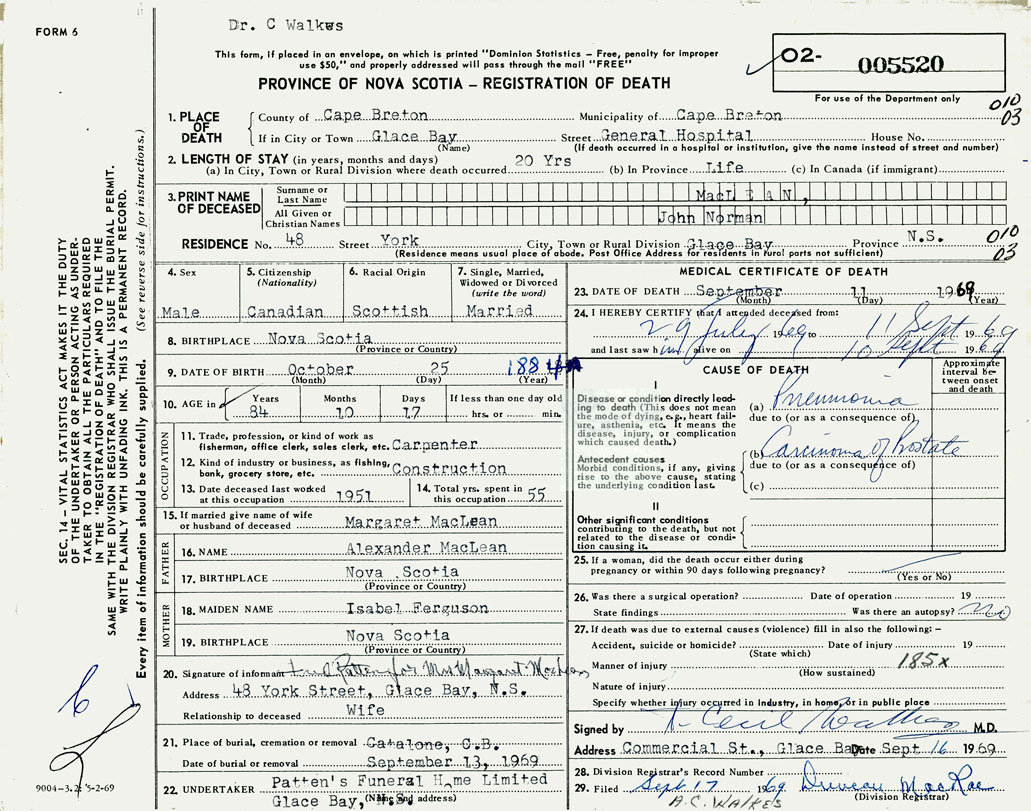 Dr. C Walkes
FORM 6
This form, if placed in an envelope, on which is printed "Dominion Statistics – Free, penalty for improper
use $50," and properly addressed will pass through the mail "FREE"
PROVINCE OF NOVA SCOTIA – REGISTRATION OF DEATH
O2- 005520
For use of the Department only
010
03
1. PLACE OF DEATH
County of Cape Breton Municipality of Cape Breton
If in City or Town Glace Bay Street General Hospital House No.
(Name) (If death occurred in a hospital or institution, give the name instead of street and number)
2. LENGTH OF STAY (in years, months and days)
(a) In City, Town or Rural Division where death occurred 20 Yrs (b) In Province Life (c) In Canada (if immigrant)
3. PRINT NAME OF DECEASED
Surname or Last Name MacLEAN,
All Given or Christian Names John Norman
RESIDENCE No. 48 Street York City, Town or Rural Division Glace Bay Province N.S.
(Residence means usual place of abode. Post Office Address for residents in rural parts not sufficient)
010
03
4. Sex
Male
5. Citizenship
(Nationality)
Canadian
6. Racial Origin
Scottish
7. Single, Married,
Widowed or Divorced
(write the word)
Married
8. BIRTHPLACE Nova Scotia
(Province or Country)
9. DATE OF BIRTH October 25 188
(Month) (Day) (Year)
10. AGE in Years Months Days If less than one day old
84 10 17 hrs. or min.
OCCUPATION
11. Trade, profession, or kind of work as
fisherman, office clerk, sales clerk, etc. Carpenter
12. Kind of industry or business, as fishing,
bank, grocery store, etc. Construction
13. Date deceased last worked
at this occupation 1951
14. Total yrs. spent in
this occupation 55
15. If married give name of wife
or husband of deceased Margaret MacLean
FATHER
16. NAME Alexander MacLean
17. BIRTHPLACE Nova Scotia
(Province or Country)
MOTHER
18. MAIDEN NAME Isabel Ferguson
19. BIRTHPLACE Nova Scotia
(Province or Country)
20. Signature of informant Patten for Mrs Margaret MacLean
Address 48 York Street, Glace Bay, N.S.
Relationship to deceased Wife
21. Place of burial, cremation or removal Catalone, C.B.
Date of burial or removal September 13, 1969
22. UNDERTAKER Patten's Funeral Home Limited
Glace Bay, N.S.
(Name and address)
MEDICAL CERTIFICATE OF DEATH
23. DATE OF DEATH September 11 1969
(Month) (Day) (Year)
24. I HEREBY CERTIFY that I attended deceased from:
29 July 1969 to 11 Sept 1969
and last saw him alive on 10 Sept 1969
CAUSE OF DEATH
Approximate
interval between
onset
and death
I
Disease or condition directly leading
to death (This does not
mean the mode of dying, e.g., heart failure,
asthenia, etc. It means the
disease, injury, or complication
which caused death.)
(a) Pneumonia
due to (or as a consequence of)
Antecedent causes
Morbid conditions, if any, giving
rise to the above cause, stating
the underlying condition last.
(b) Carcinoma of Prostate
due to (or as a consequence of)
(c)
II
Other significant conditions
contributing to the death, but not
related to the disease or condition
causing it.
25. If a woman, did the death occur either during
pregnancy or within 90 days following pregnancy?
(Yes or No)
26. Was there a surgical operation? Date of operation 19
State findings Was there an autopsy? no
27. If death was due to external causes (violence) fill in also the following: –
Accident, suicide or homicide? Date of injury 19
(State which)
185x
Manner of injury
(How sustained)
Nature of injury
Specify whether injury occurred in Industry, in home, or in public place
Signed by A Cecil Walkes M.D.
Address Commercial St., Glace Bay Date Sept 16 1969
28. Division Registrar's Record Number
29. Filed Sept 17 1969 Duncan MacRae
(Division Registrar)
A.C. WALKES
SEC. 14 – VITAL STATISTICS ACT MAKES IT THE DUTY
OF THE UNDERTAKER OR PERSON ACTING AS UNDERTAKER
TO OBTAIN ALL THE PARTICULARS REQUIRED
IN THE "REGISTRATION OF DEATH" AND TO FILE THE
SAME WITH THE DIVISION REGISTRAR WHO SHALL ISSUE THE BURIAL PERMIT.
WRITE PLAINLY WITH UNFADING INK. THIS IS A PERMANENT RECORD.
Every item of information should be carefully supplied. (See reverse side for instructions.)
9004-3.2: 5-2-69